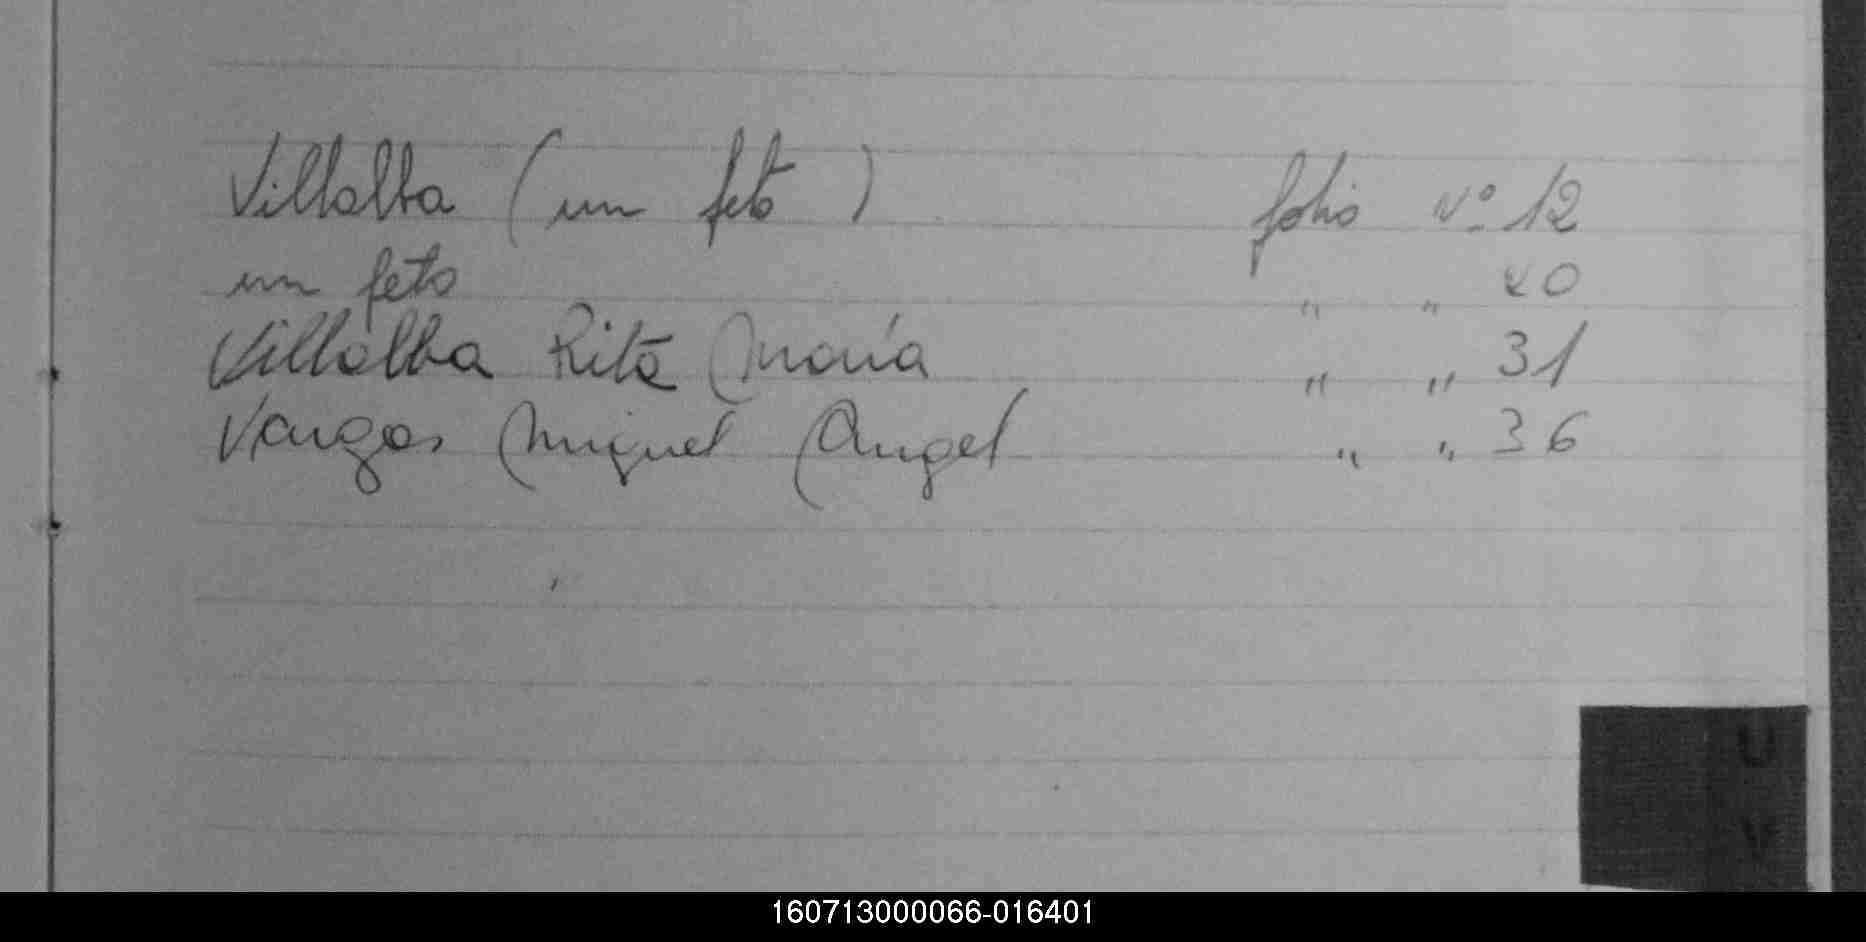 Villalba (un feto) folio Nº 12
un feto " " 20
Villalba Rita María " " 31
Vargas Miguel Angel " " 36
U
V
160713000066-016401